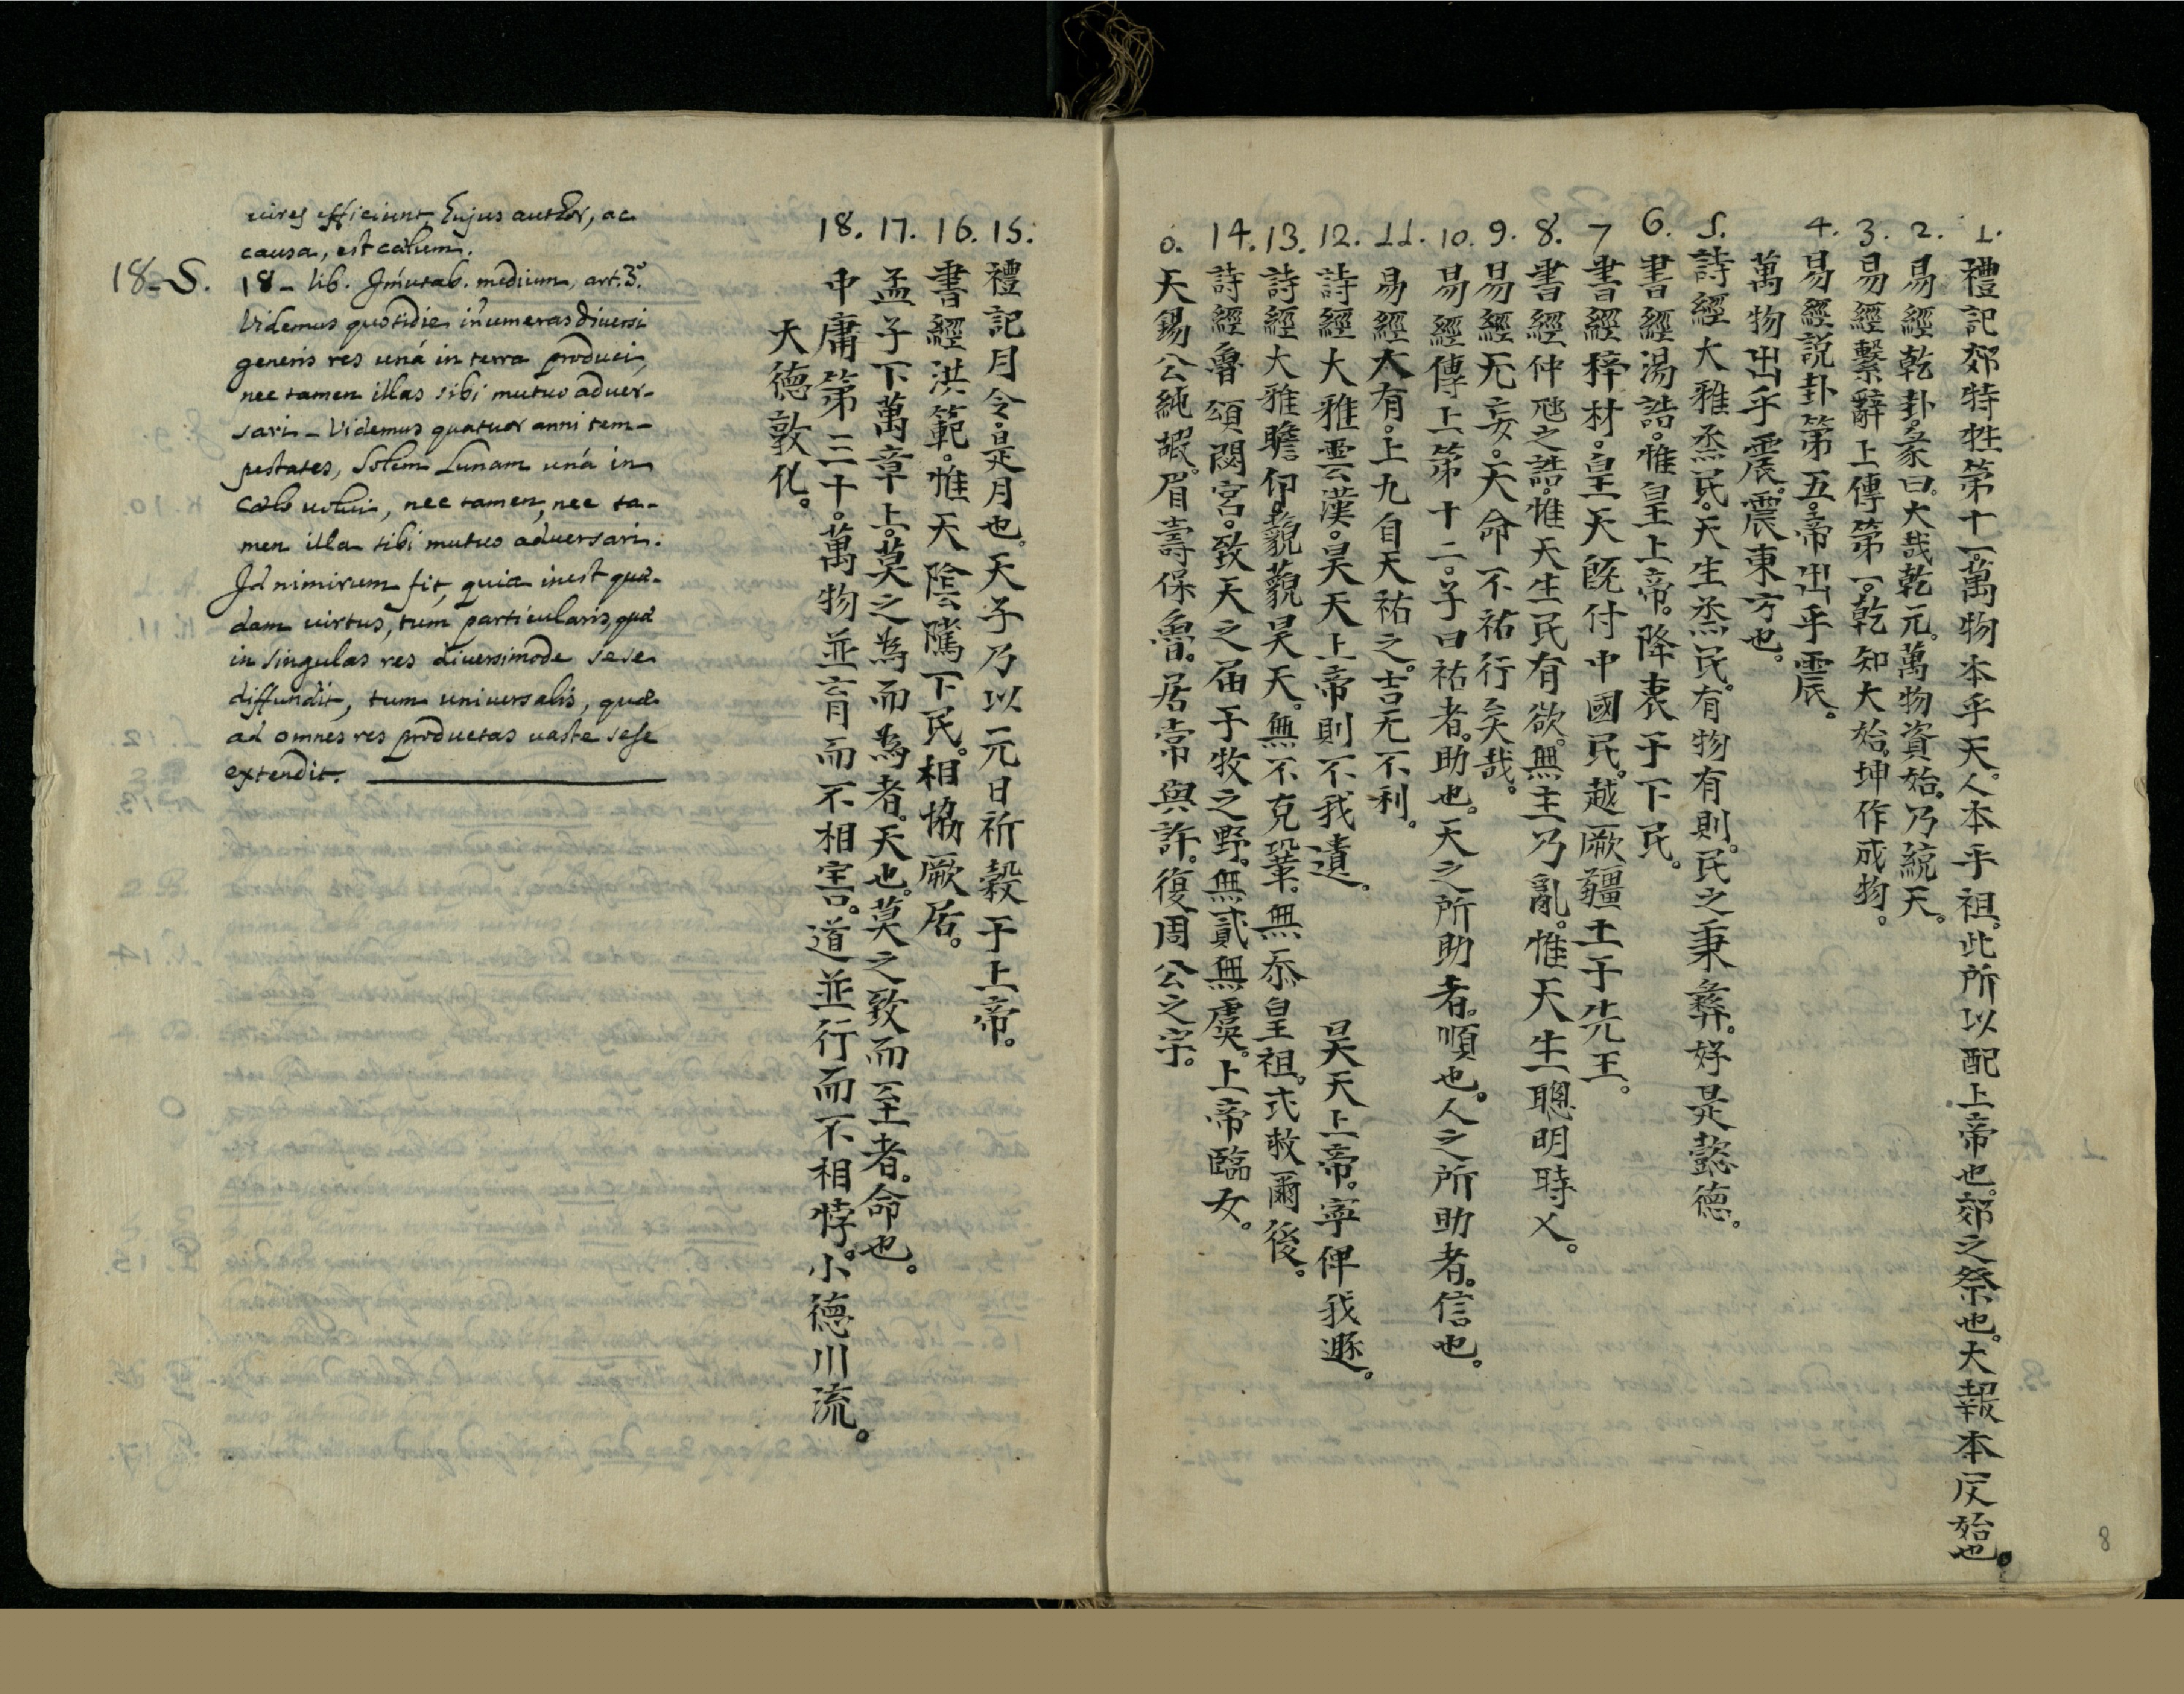 1. 禮記郊特牲第十一。萬物本乎天。人本乎祖。此所以配上帝也。郊之祭也。大報本反始也。
2. 易經乾卦。彖曰。大哉乾元。萬物資始。乃統天。
3. 易經繫辭上傳第一。乾知大始。坤作成物。
4. 易經説卦第五。帝出乎震。
萬物出乎震。震東方也。
5. 詩經大雅烝民。天生烝民。有物有則。民之秉彝。好是懿德。
6. 書經湯誥。惟皇上帝。降衷于下民。
7 書經梓材。皇天旣付中國民。越厥疆土于先王。
8. 書經仲虺之誥。惟天生民有欲。無主乃亂。惟天生聰明時乂。
9. 易經无妄。天命不祐行矣哉。
10. 易經傳上第十二。子曰祐者。助也。天之所助者。順也。人之所助者。信也。
11. 易經大有。上九自天祐之。吉无不利。
12. 詩經大雅雲漢。昊天上帝則不我遺。 昊天上帝。寧俾我遯。
13. 詩經大雅瞻卬。藐藐昊天。無不克鞏。無忝皇祖。式救爾後。
14. 詩經魯頌閟宮。致天之届于牧之野。無貳無虞。上帝臨女。
0. 天錫公純嘏。眉壽保魯。居常與許。復周公之宇。
15. 禮記月令。是月也。天子乃以元日祈穀于上帝。
16. 書經洪範。惟天陰騭下民。相協厥居。
17. 孟子下萬章上。莫之為而為者。天也。莫之致而至者。命也。
18. 中庸第三十。萬物並育而不相害。道並行而不相悖。小德川流。
天德敦化。
vires efficiunt, Cujus author, ac
causa, est cœlum.
18-S. 18 - lib. Im̃utab. medium, art. 3.°
Videmus quotidie iñumeras diversi
generis res unà in terra produci,
nec tamen illas sibi mutuo adver-
sari - Videmus quatuor anni tem-
pestates, Solem Lunam unà in
Cœlo volvi, nec tamen, nec ta-
men illa sibi mutuo adversari.
Id nimirum fit, quia inest quæ-
dam virtus, tum particularis, quæ
in singulas res diversimode sese
diffundit, tum universalis, quæ
ad omnes res productas vaste sese
extendit.
8